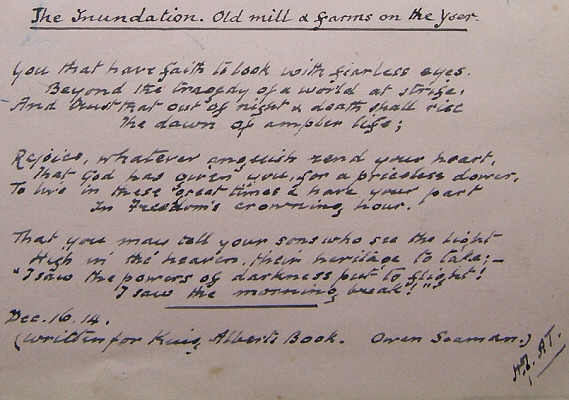 The Inundation. Old mill & farms on the Yser.
You that have faith to look with fearless eyes.
Beyond the tragedy of a world at strife,
And trust that out of night & death shall rise
The dawn of ampler life;
Rejoice, whatever anguish rend your heart,
That God has given you, for a priceless dower,
To live in these great times & have your part
In Freedom's crowning hour.
That you may tell your sons who see the light
High in the heaven, their heritage to take;—
"I saw the powers of darkness put to flight!
I saw the morning break!"
Dec. 16. 14.
(written for King Albert's Book. Owen Seaman.)
AT.